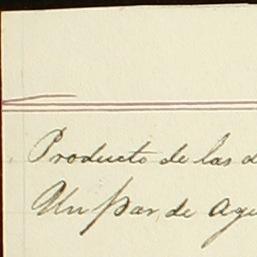 Producto de las d
Un par de agu